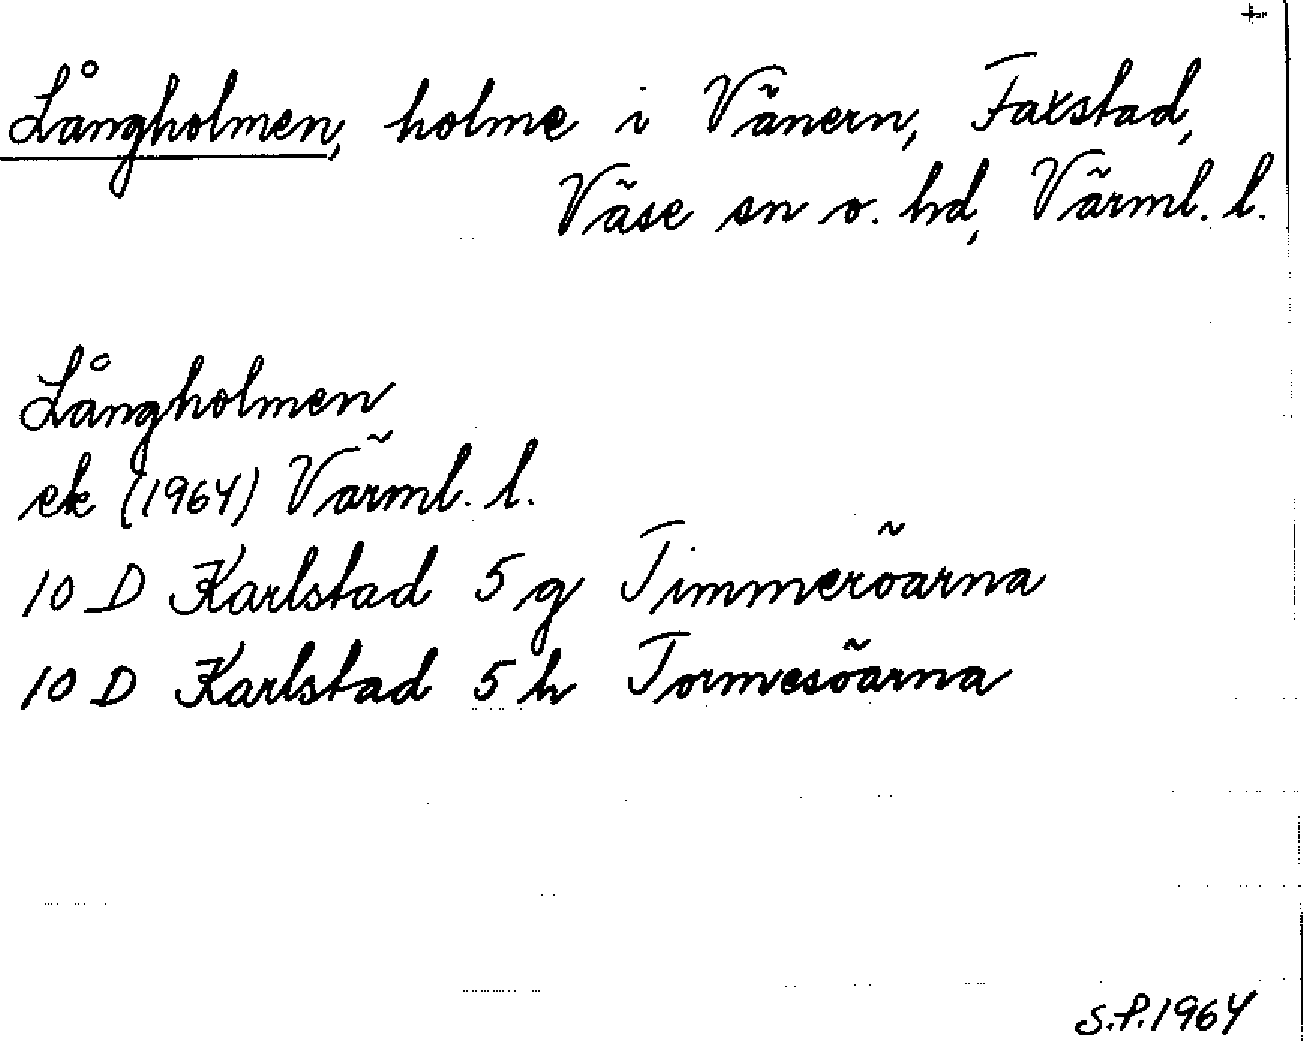 +
Långholmen, holme i Vänern, Faxstad,
Väse sn o. hd, Värml. l.
Långholmen
ek (1964) Värml. l.
10 D Karlstad 5 g Timmeröarna
10 D Karlstad 5 h Tormesöarna
S.P. 1964